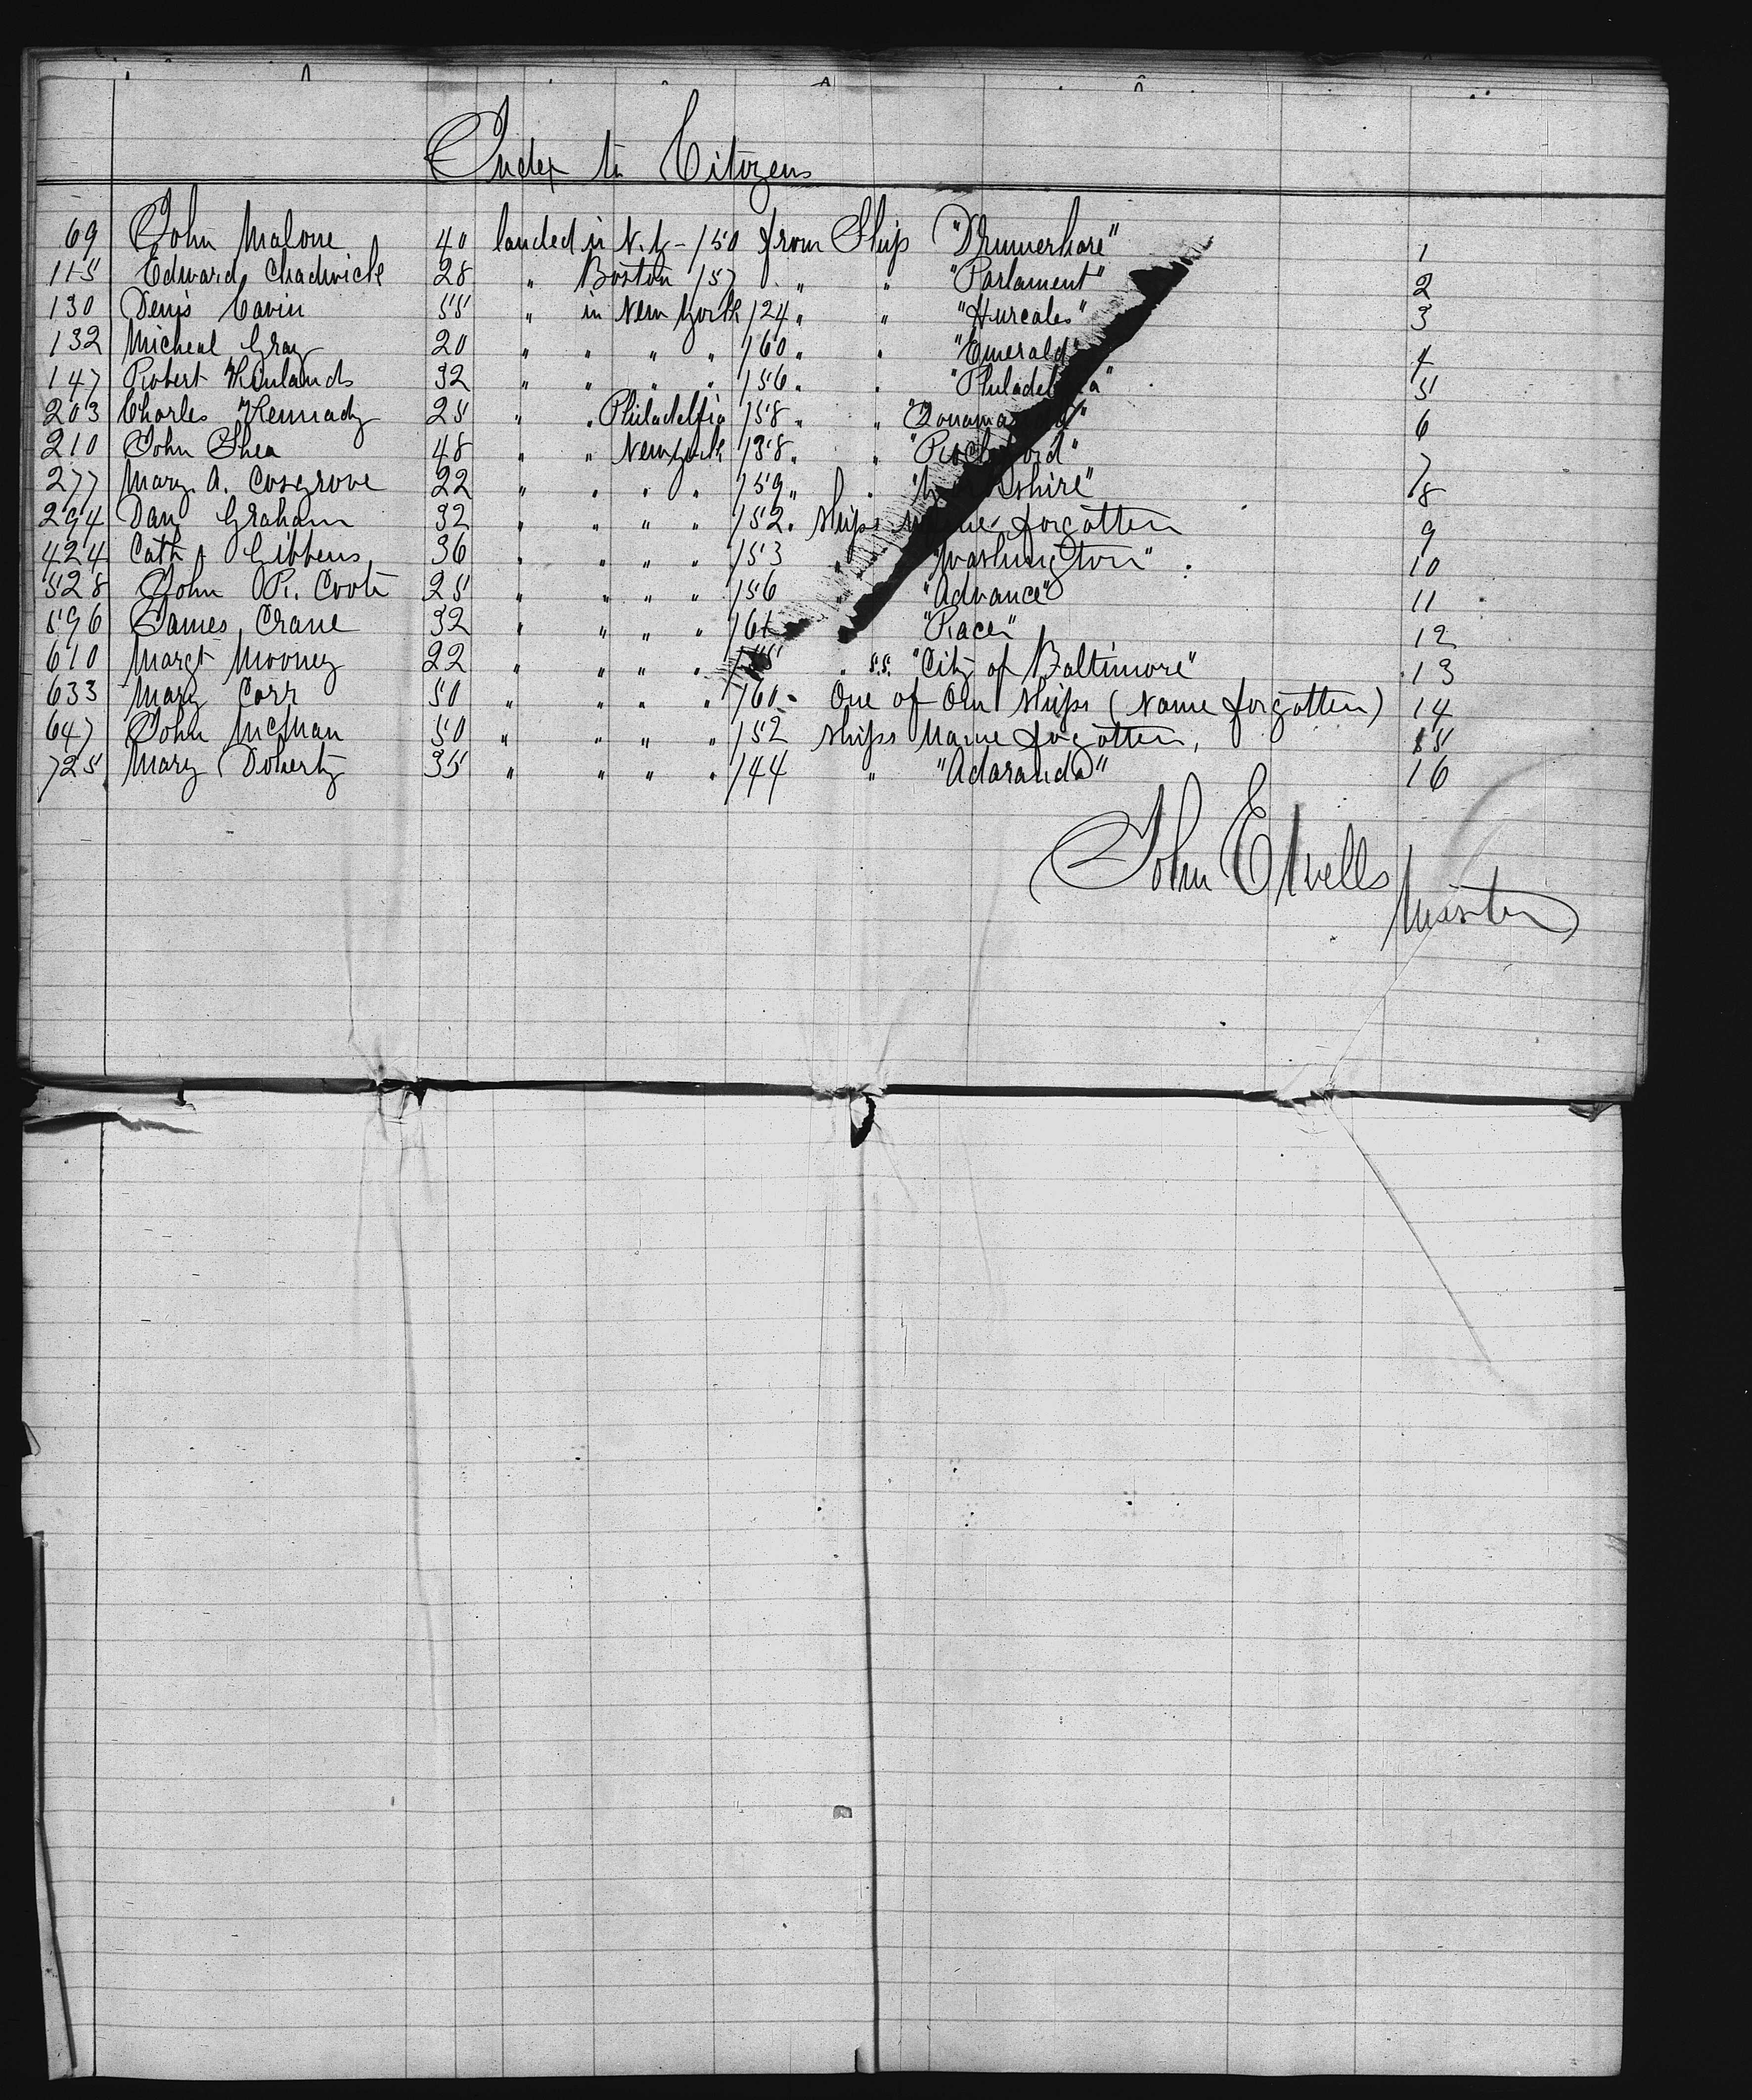 Index to Citizens
69 John Malone 40 landed in N.Y - 150 from Ship "Drumerhare" 1
115 Edward Chadwick 28 " Boston 157 " " "Parlament" 2
130 Denis Cavin 55 " in New York 124 " " "Hurcales" 3
132 Micheal Gray 20 " " " " 160 " " "Emerald" 4
147 Robert 32 " " " " 156 " " 5
203 Charles Kennady 25 " " Philadelfia 158 " " 6
210 John Shea 48 " " New York 138 " " 7
277 Mary A. Cosgrove 22 " " " " 159 " " 8
294 Dan Graham 32 " " " " 152 " Ships forgotten 9
424 Cath Gibbens 36 " " " " 153 "Washington" 10
528 John R. Coote 25 " " " " 156 " "Advance" 11
596 James Crane 32 " " " " "Racer" 12
610 Margt Mooney 22 " " " " " S.S. "City of Baltimore" 13
633 Mary Corr 50 " " " " 160 " One of Our Ships (Name forgotten) 14
647 John McMan 50 " " " " 152 Ships Name fogotten, 15
725 Mary Doherty 35 " " " " 144 " "Adaranda" 16
John E Wells
Master